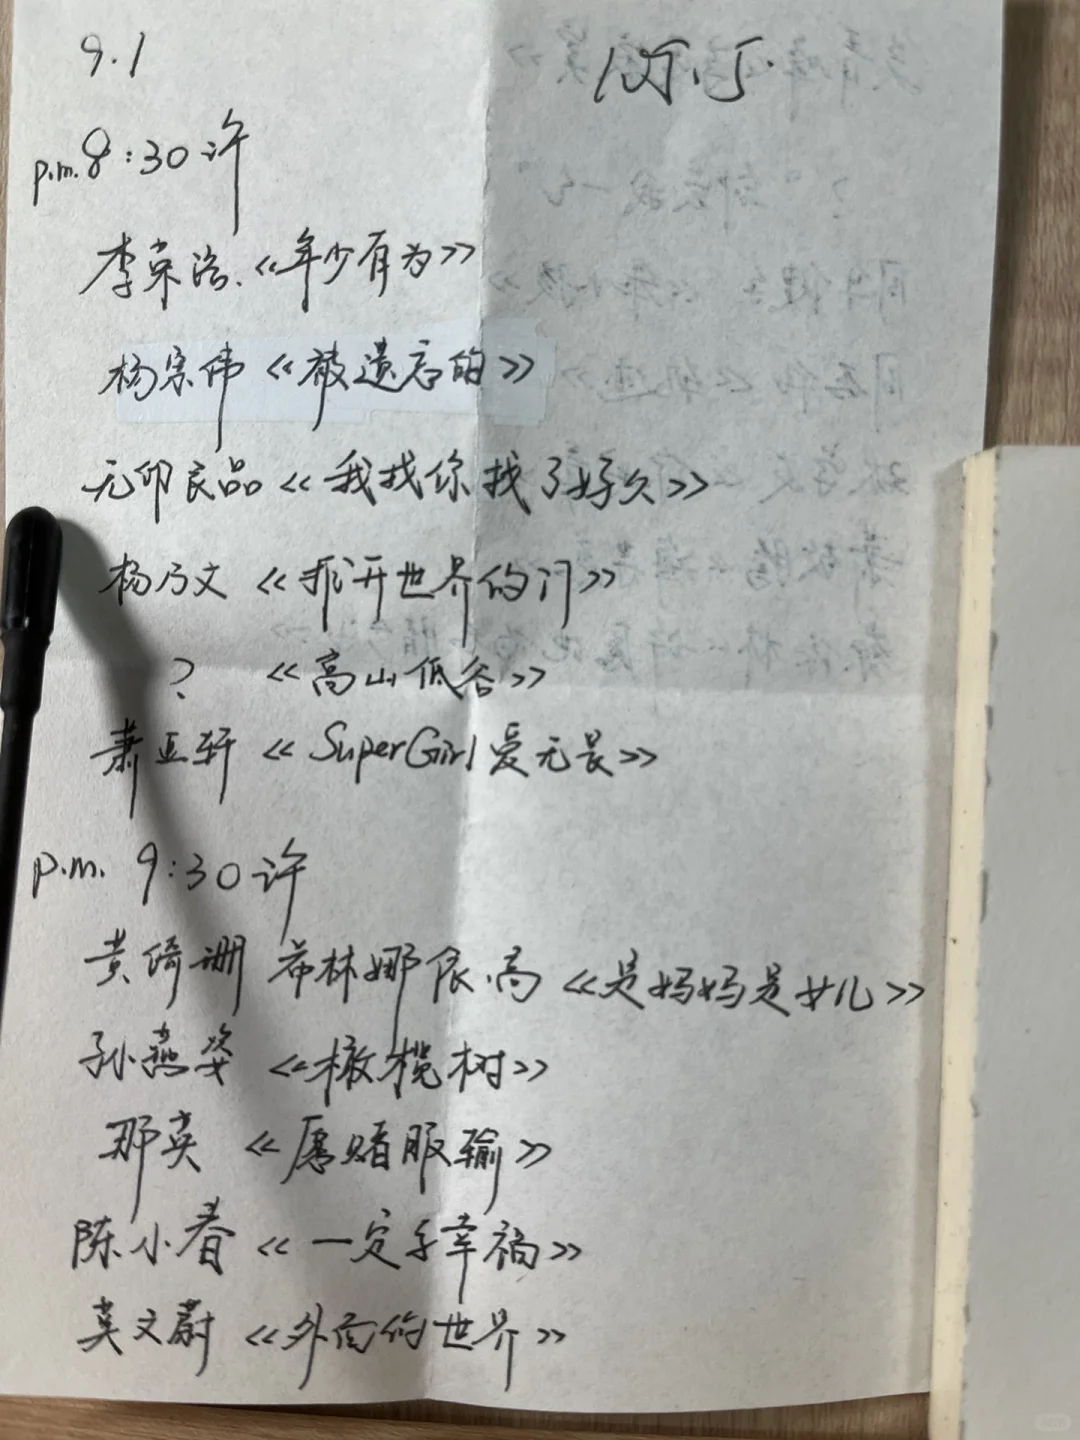 9.1
p.m.8:30许
李荣浩.《年少有为》
杨宗伟《被遗忘的》
无印良品《我找你找了好久》
杨乃文《推开世界的门》
? 《高山低谷》
萧亚轩《SuperGirl爱无畏》
p.m. 9:30许
黄绮珊 希林娜依.高《是妈妈是女儿》
孙燕姿《橄榄树》
那英《愿赌服输》
陈小春《一定要幸福》
莫文蔚《外面的世界》